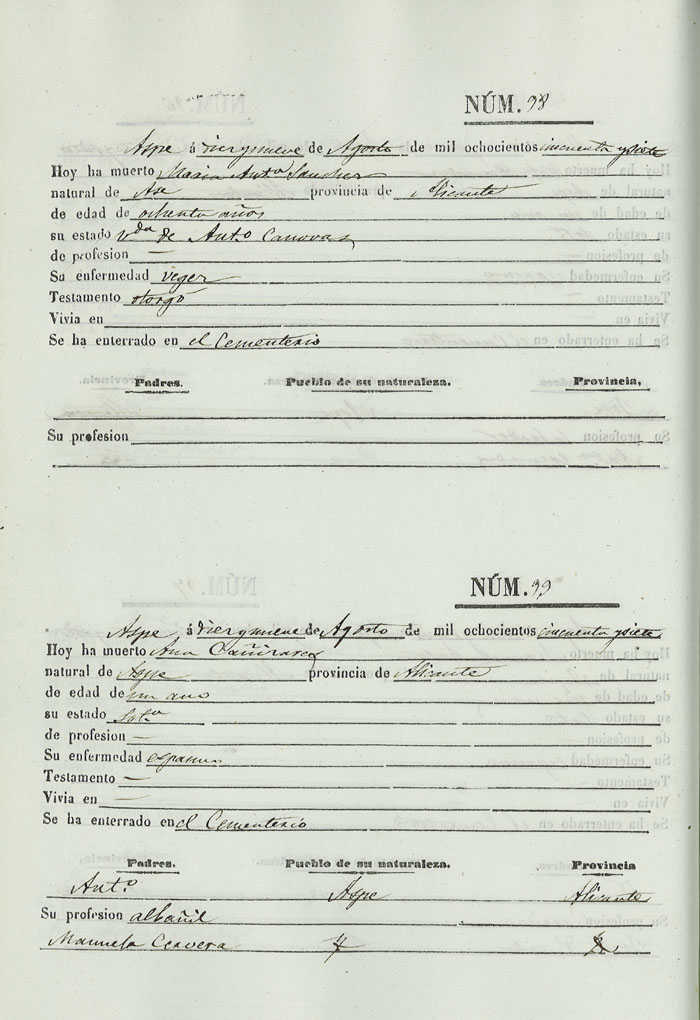 NÚM. 98
Aspe á diez y nueve de Agosto de mil ochocientos cincuenta y siete
Hoy ha muerto Maria Ant.ª Sanchez
natural de provincia de Alicante
de edad de ochenta años
su estado v.da de Ant.o Canovas
de profesion —
Su enfermedad veger
Testamento otorgó
Vivia en
Se ha enterrado en el Cementerio
Padres. Pueblo de su naturaleza. Provincia,
Su profesion
NÚM. 99
Aspe á diez y nueve de Agosto de mil ochocientos cincuenta y siete
Hoy ha muerto Ana
natural de Aspe provincia de Alicante
de edad de un año
su estado Solt.a
de profesion —
Su enfermedad espasmo
Testamento —
Vivia en —
Se ha enterrado en el Cementerio
Padres. Pueblo de su naturaleza. Provincia
Ant.o Aspe Alicante
Su profesion albañil
Manuela Cervera